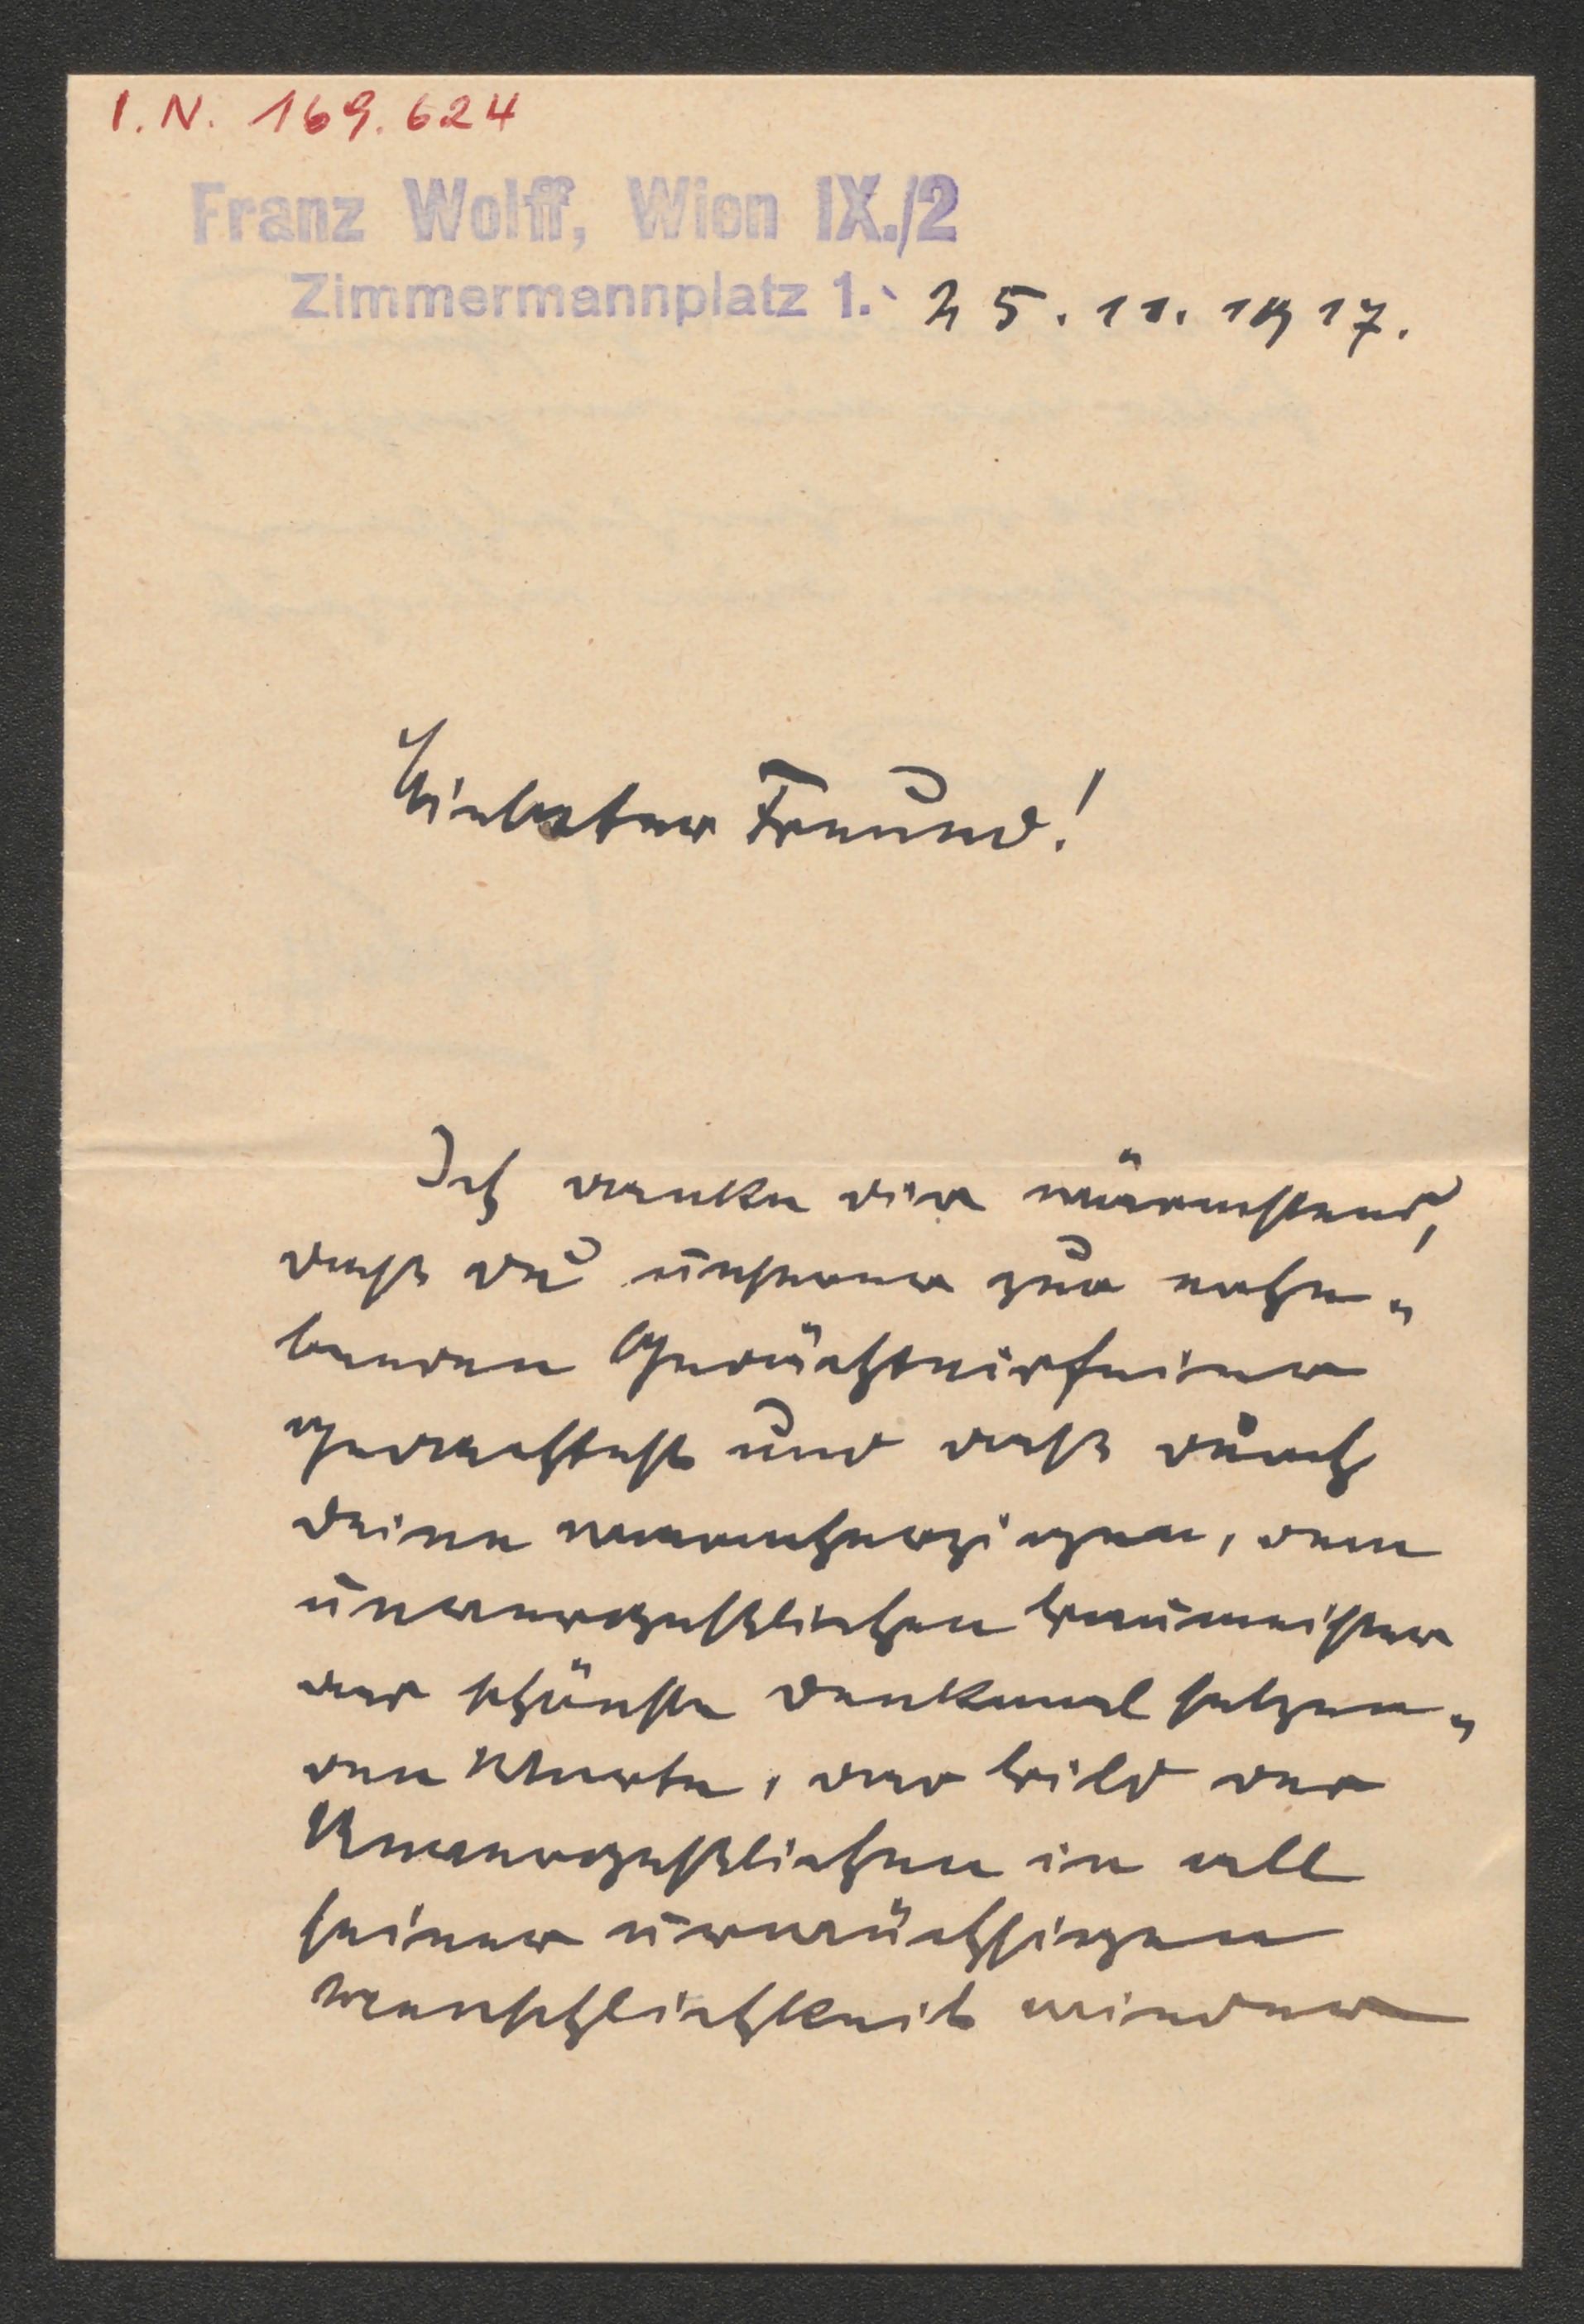 I. N. 169.624
Franz Wolff, Wien IX./2
Zimmermannplatz 1.
25. 11. 1917.
Liebster Freund!
Ich danke dir wärmstens,
daß du unserer zur erhe-
benden Gedächtnisfeier
gedachtest und daß durch
deine warmherzigen, dem
unvergeßlichen Baumeister
das schönste Denkmal setzen-
den Worte, das Bild des
Unvergeßlichen in all
seiner urwüchsigen
Menschlichkeit wieder